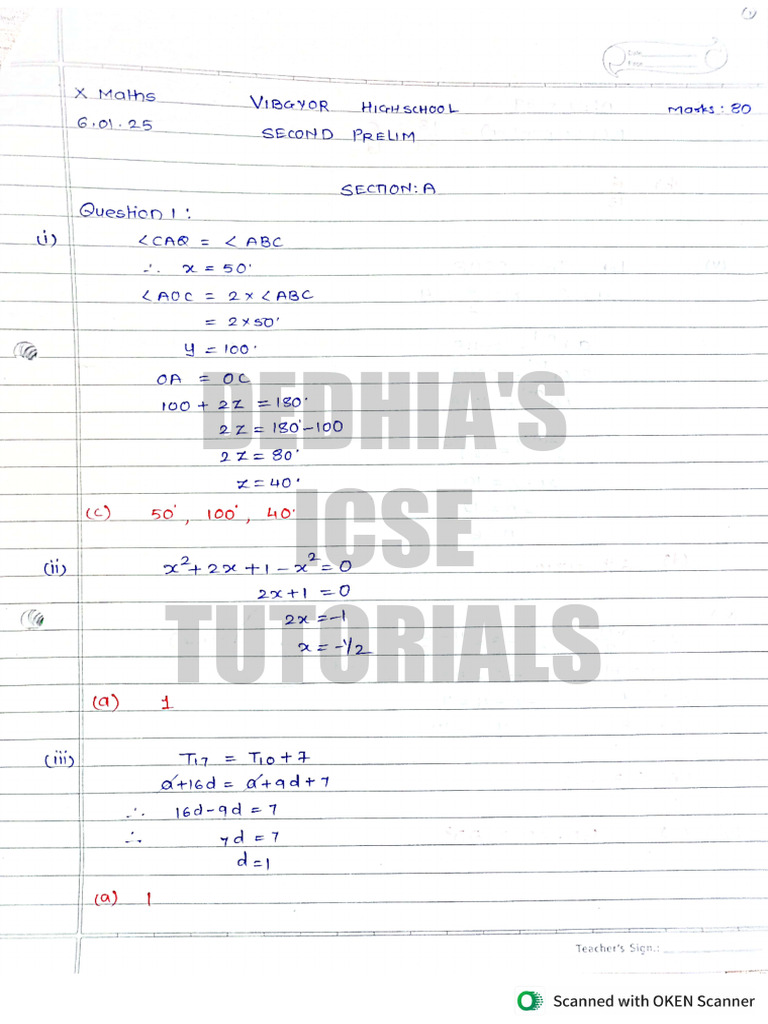 (1)
Date
Page
X Maths VIBGYOR HIGHSCHOOL Marks: 80
6.01.25 SECOND PRELIM
SECTION: A
Question 1:
(i) ∠CAQ = ∠ABC
∴ x = 50°
∠AOC = 2 × ∠ABC
= 2 × 50°
y = 100°
OA = OC
100 + 2z = 180°
2z = 180° - 100
2z = 80°
z = 40°
(c) 50°, 100°, 40°
(ii) x² + 2x + 1 - x² = 0
2x + 1 = 0
2x = -1
x = -1/2
(a) 1
(iii) T17 = T10 + 7
a + 16d = a + 9d + 7
∴ 16d - 9d = 7
∴ 7d = 7
d = 1
(a) 1
DEDHIA'S
ICSE
TUTORIALS
Teacher's Sign.:
Scanned with OKEN Scanner